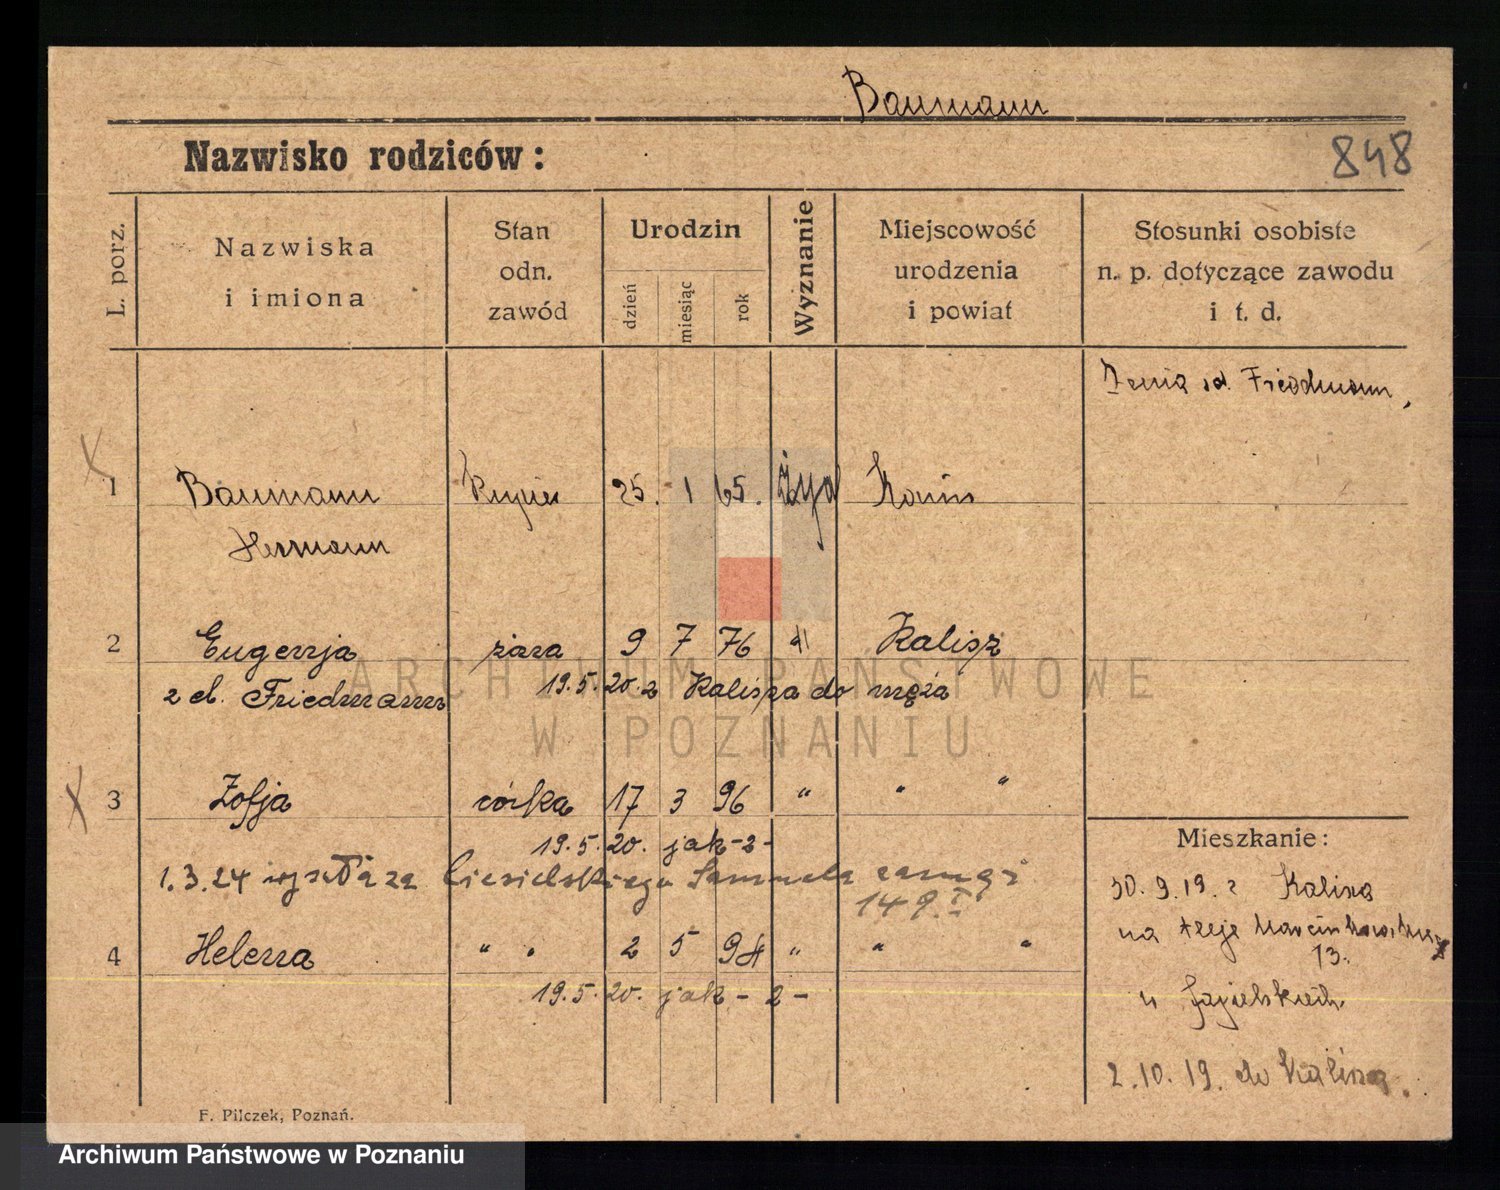 Baumann
Nazwisko rodziców:
848
L. porz.
Nazwiska
i imiona
Stan
odn.
zawód
Urodzin
dzień
miesiąc
rok
Wyznanie
Miejscowość
urodzenia
i powiat
Stosunki osobiste
n. p. dotyczące zawodu
i t. d.
Friedmann,
1 Baumann Kupiec 25. 1 65. Żyd Konin
Hermann
2 Eugenja żona 9 7 76 " Kalisz
z d. Friedmann 19.5.20. z Kalisza do męża
3 Zofja córka 17 3 96 " " "
19.5.20. jak -2-
1.3.24 wyszła za Ciesielskiego Samuela zamąż
149.I
4 Helena " " 2 5 94 " " "
19.5.20. jak -2-
Mieszkanie:
30.9.19. z Kalisza
na Aleje Marcinkowskiego
13.
u Jagielskich
2.10.19. do Kalisza.
F. Pilczek, Poznań.
ARCHIWUM PAŃSTWOWE
W POZNANIU
Archiwum Państwowe w Poznaniu